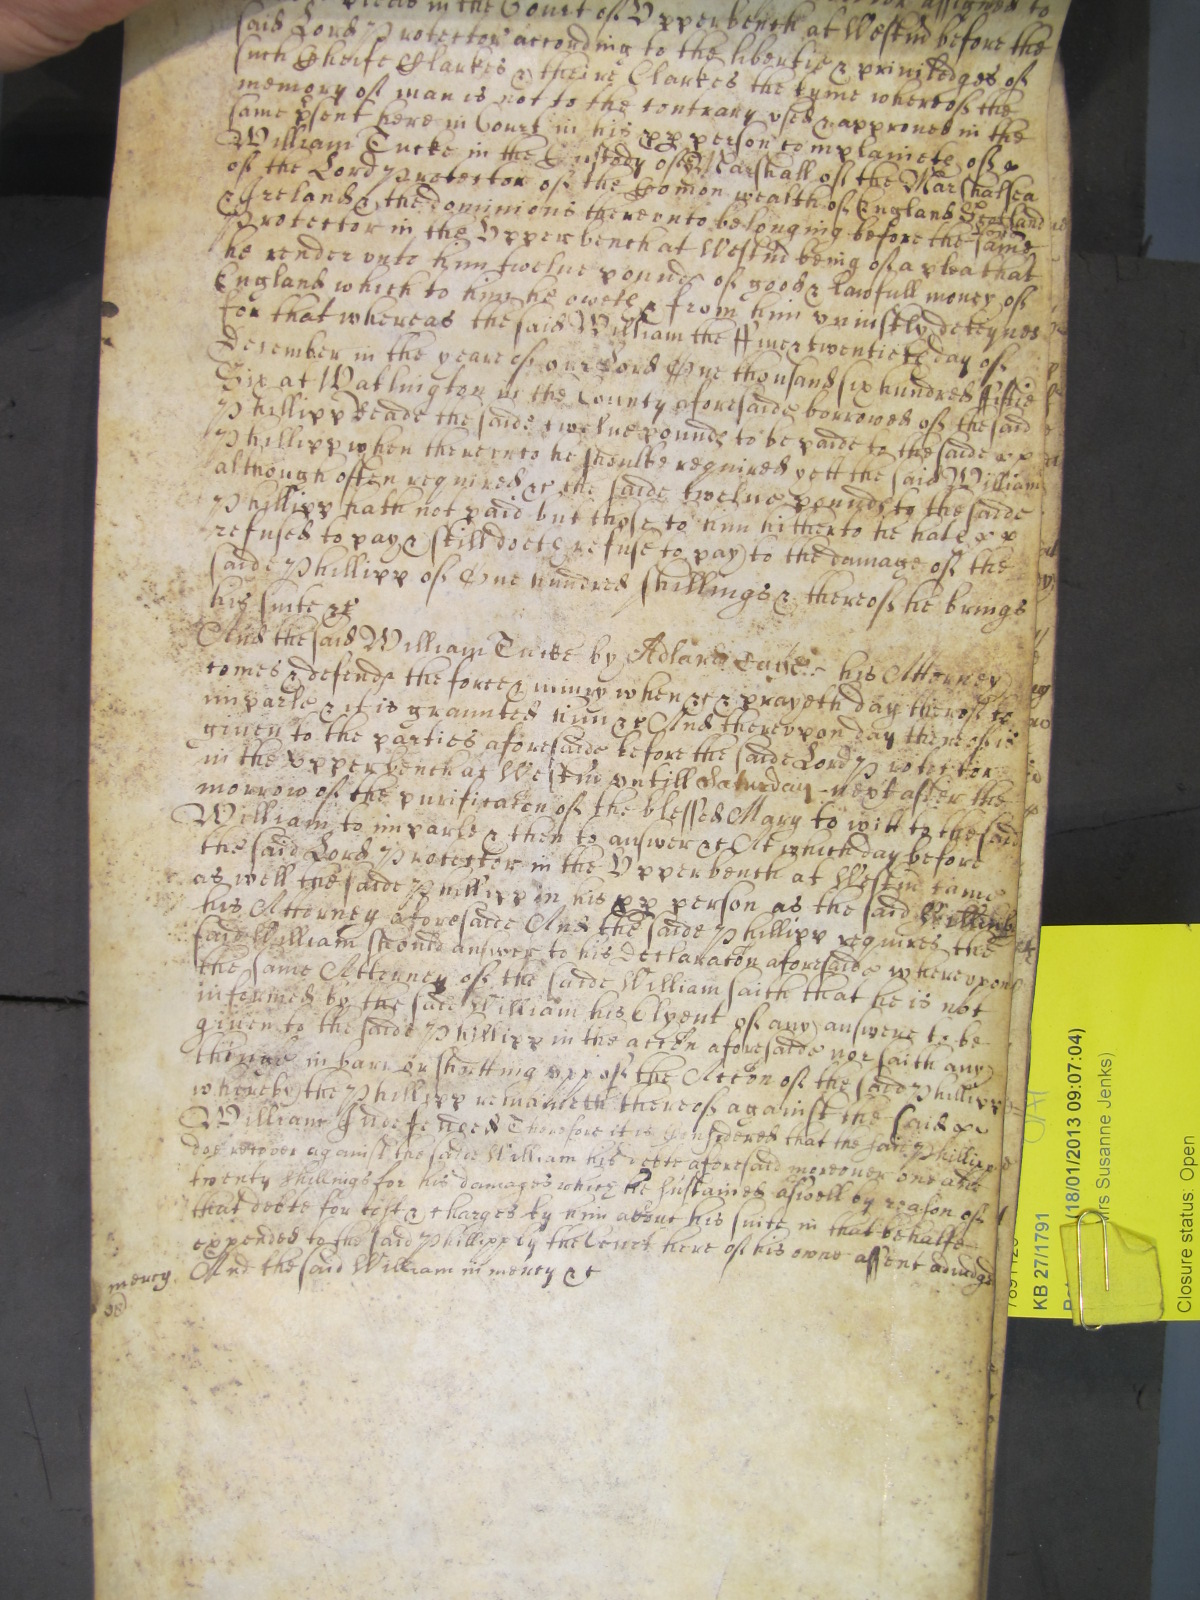 pleas in the Court of Upper bench at Westm before the
said Lord Protector according to the libertie & priviledges of
such Cheife Clarkes & theire Clarkes the tyme whereof the
memory of man is not to the contrary used & approved in the
same psent here in Court in his pp person complaineth of
William Tucke in the Custody of ye Marshall of the Marshalsea
of the Lord Protector of the Comon wealth of England Scotland
& Ireland & the dominions thereunto belonging before the same
Protector in the Upper bench at Westm being of a plea that
he render unto him twelve pounds of good & lawfull money of
England which to him he oweth & from him uniustly deteynes
for that whereas the said William the ffive & twentieth day of
December in the yeare of our Lord One thousand six hundred ffiftie
Six at Watlington in the County aforesaide borrowed of the said
Phillipp Reade the saide twelve pounds to be paide to the saide
Phillipp when thereunto he should be required yett the said William
although often required &c the saide twelve pounds to the saide
Phillipp hath not paid but those to him hitherto he hath
refused to pay & still doeth refuse to pay to the damage of the
saide Phillipp of One hundred shillings & thereof he brings
his suite &c
And the said William Tucke by Adland his Attorney
comes & defends the force & iniury when &c & prayeth day thereof to
imparle & it is graunted him &c And thereupon day thereof is
given to the parties aforesaide before the saide Lord Protector
in the Upper bench at Westm untill Saturday next after the
morrow of the purificacon of the blessed Mary to witt to the said
William to imparle & then to answer &c At which day before
the said Lord Protector in the Upper bench at Westm came
as well the saide Phillipp in his pp person as the said William by
his Attorney aforesaide And the saide Phillipp requires the
said William should answer to his declaracon aforesaid whereupon
the same Attorney of the saide William saith that he is not
informed by the saide William his Clyent of any answere to be
given to the saide Phillipp in the accon aforesaide nor saith any
thinge in barr or shutting upp of the Accon of the said Phillipp
whereby the Phillipp remaineth thereof against the said
William Undefended Therefore it is considered that the saide Phillipp
doe recover against the saide William his debte aforesaid moreover one and
twenty shillings for his damages which he sustained aswell by reason of
that debte for cost & charges by him about his suite in that behalfe
expended to the said Phillipp by the Court here of his owne assent adiudged
And the said William in mercy &c
mercy
KB 27/1791
(18/01/2013 09:07:04)
Mrs Susanne Jenks)
Closure status: Open